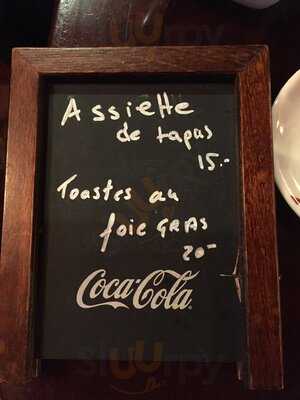 Assiette
de tapas
15.-
Toastes au
foie GRAS
20-
Coca-Cola
sluurpy